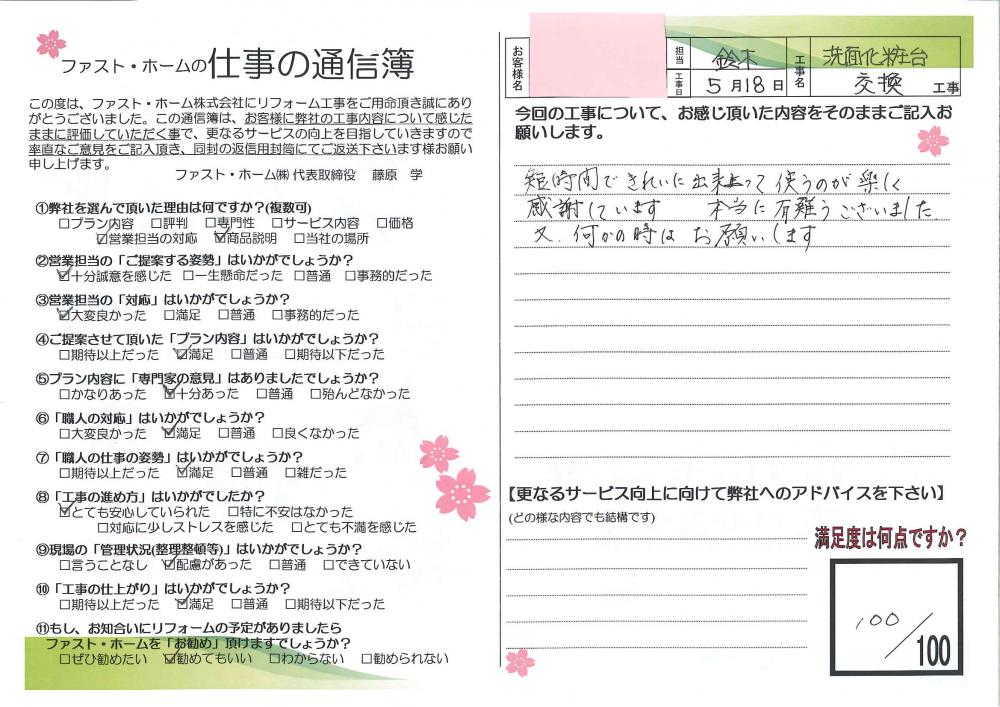 ファスト・ホームの仕事の通信簿
この度は、ファスト・ホーム株式会社にリフォーム工事をご用命頂き誠にあり
がとうございました。この通信簿は、お客様に弊社の工事内容について感じた
ままに評価していただく事で、更なるサービスの向上を目指していきますので
率直なご意見をご記入頂き、同封の返信用封筒にてご返送下さいます様お願い
申し上げます。
ファスト・ホーム㈱ 代表取締役 藤原 学
①弊社を選んで頂いた理由は何ですか?(複数可)
□プラン内容 □評判 □専門性 □サービス内容 □価格
☑営業担当の対応 ☑商品説明 □当社の場所
②営業担当の「ご提案する姿勢」はいかがでしょうか?
☑十分誠意を感じた □一生懸命だった □普通 □事務的だった
③営業担当の「対応」はいかがでしょうか?
☑大変良かった □満足 □普通 □事務的だった
④ご提案させて頂いた「プラン内容」はいかがでしょうか?
□期待以上だった ☑満足 □普通 □期待以下だった
⑤プラン内容に「専門家の意見」はありましたでしょうか?
□かなりあった ☑十分あった □普通 □殆んどなかった
⑥「職人の対応」はいかがでしょうか?
□大変良かった ☑満足 □普通 □良くなかった
⑦「職人の仕事の姿勢」はいかがでしょうか?
□期待以上だった ☑満足 □普通 □雑だった
⑧「工事の進め方」はいかがでしたか?
☑とても安心していられた □特に不安はなかった
□対応に少しストレスを感じた □とても不満を感じた
⑨現場の「管理状況(整理整頓等)」はいかがでしょうか?
□言うことなし ☑配慮があった □普通 □できていない
⑩「工事の仕上がり」はいかがでしょうか?
□期待以上だった ☑満足 □普通 □期待以下だった
⑪もし、お知合いにリフォームの予定がありましたら
ファスト・ホームを「お勧め」頂けますでしょうか?
□ぜひ勧めたい ☑勧めてもいい □わからない □勧められない
お客様名
担当 鈴木
工事日 5月18日
工事名 洗面化粧台
交換 工事
今回の工事について、お感じ頂いた内容をそのままご記入お
願いします。
短時間できれいに出来上って使うのが楽しく
感謝しています 本当に有難うございました
又、何かの時はお願いします
【更なるサービス向上に向けて弊社へのアドバイスを下さい】
(どの様な内容でも結構です)
満足度は何点ですか?
100/100